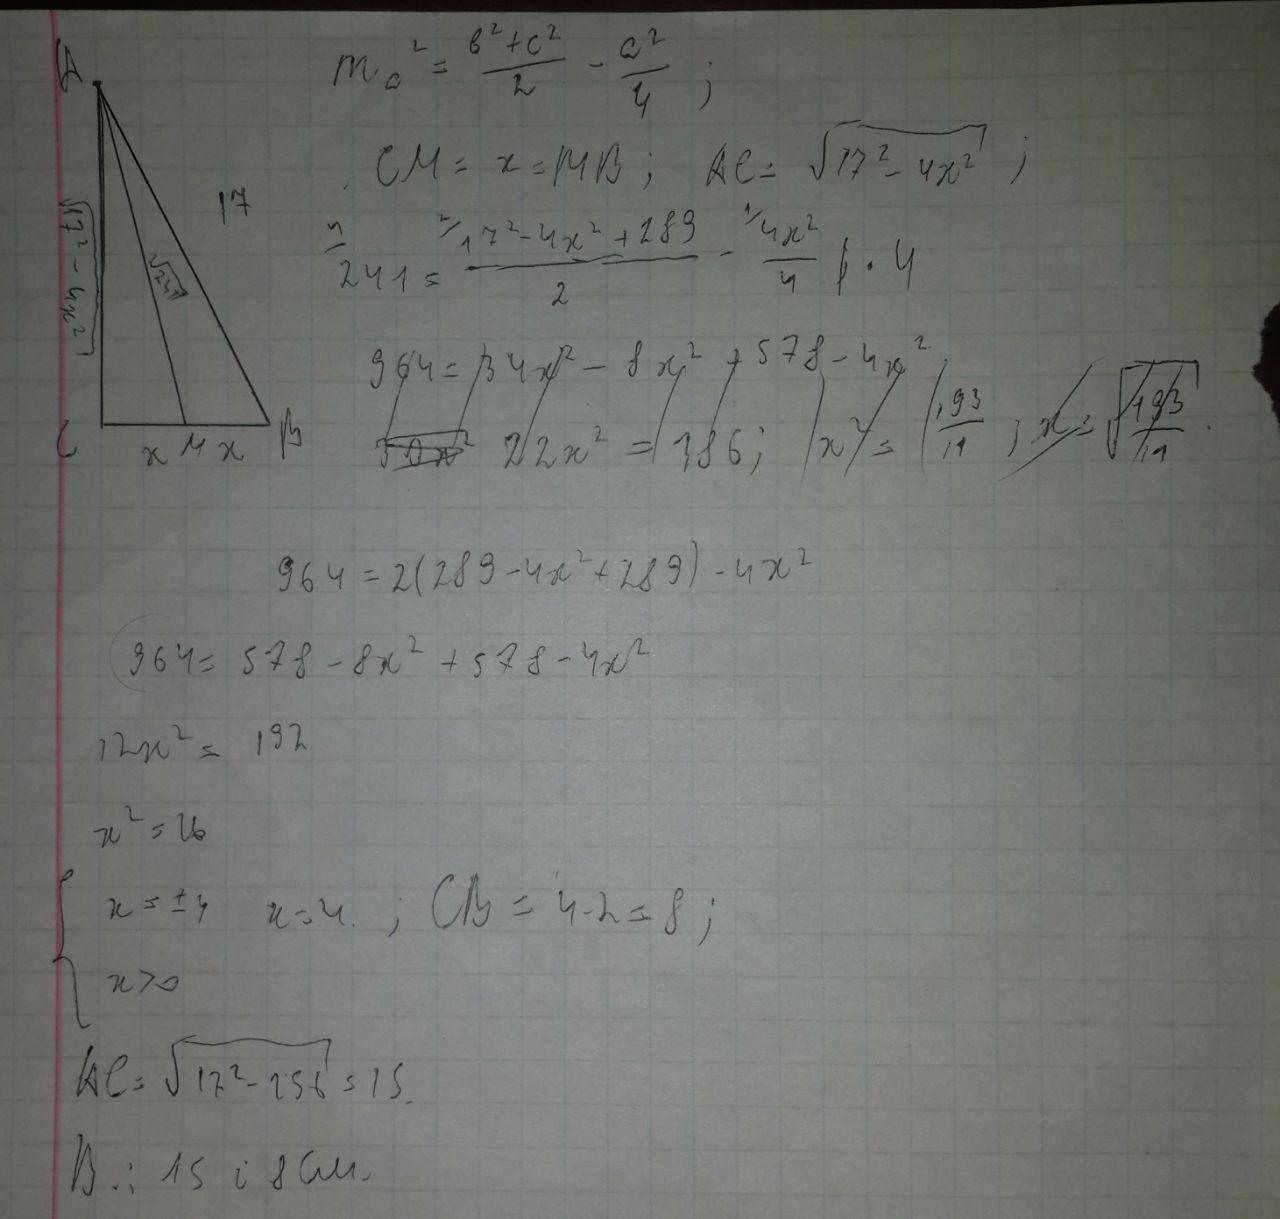 A
m_a² = (b² + c²)/2 - a²/4 ;
CM = x = MB ; AC = √(17² - 4x²) ;
17
√(17² - 4x²)
√241
241 = (17² - 4x² + 289)/2 - 4x²/4 | · 4
964 = 34x² - 8x² + 578 - 4x²
C x M x B
22x² = 386 ; x² = 193/11 ; x = √(193/11) .
964 = 2(289 - 4x² + 289) - 4x²
964 = 578 - 8x² + 578 - 4x²
12x² = 192
x² = 16
x = ±4 x = 4. ; CB = 4·2 = 8 ;
x > 0
AC = √(17² - 256) = 15.
В.: 15 і 8 см.